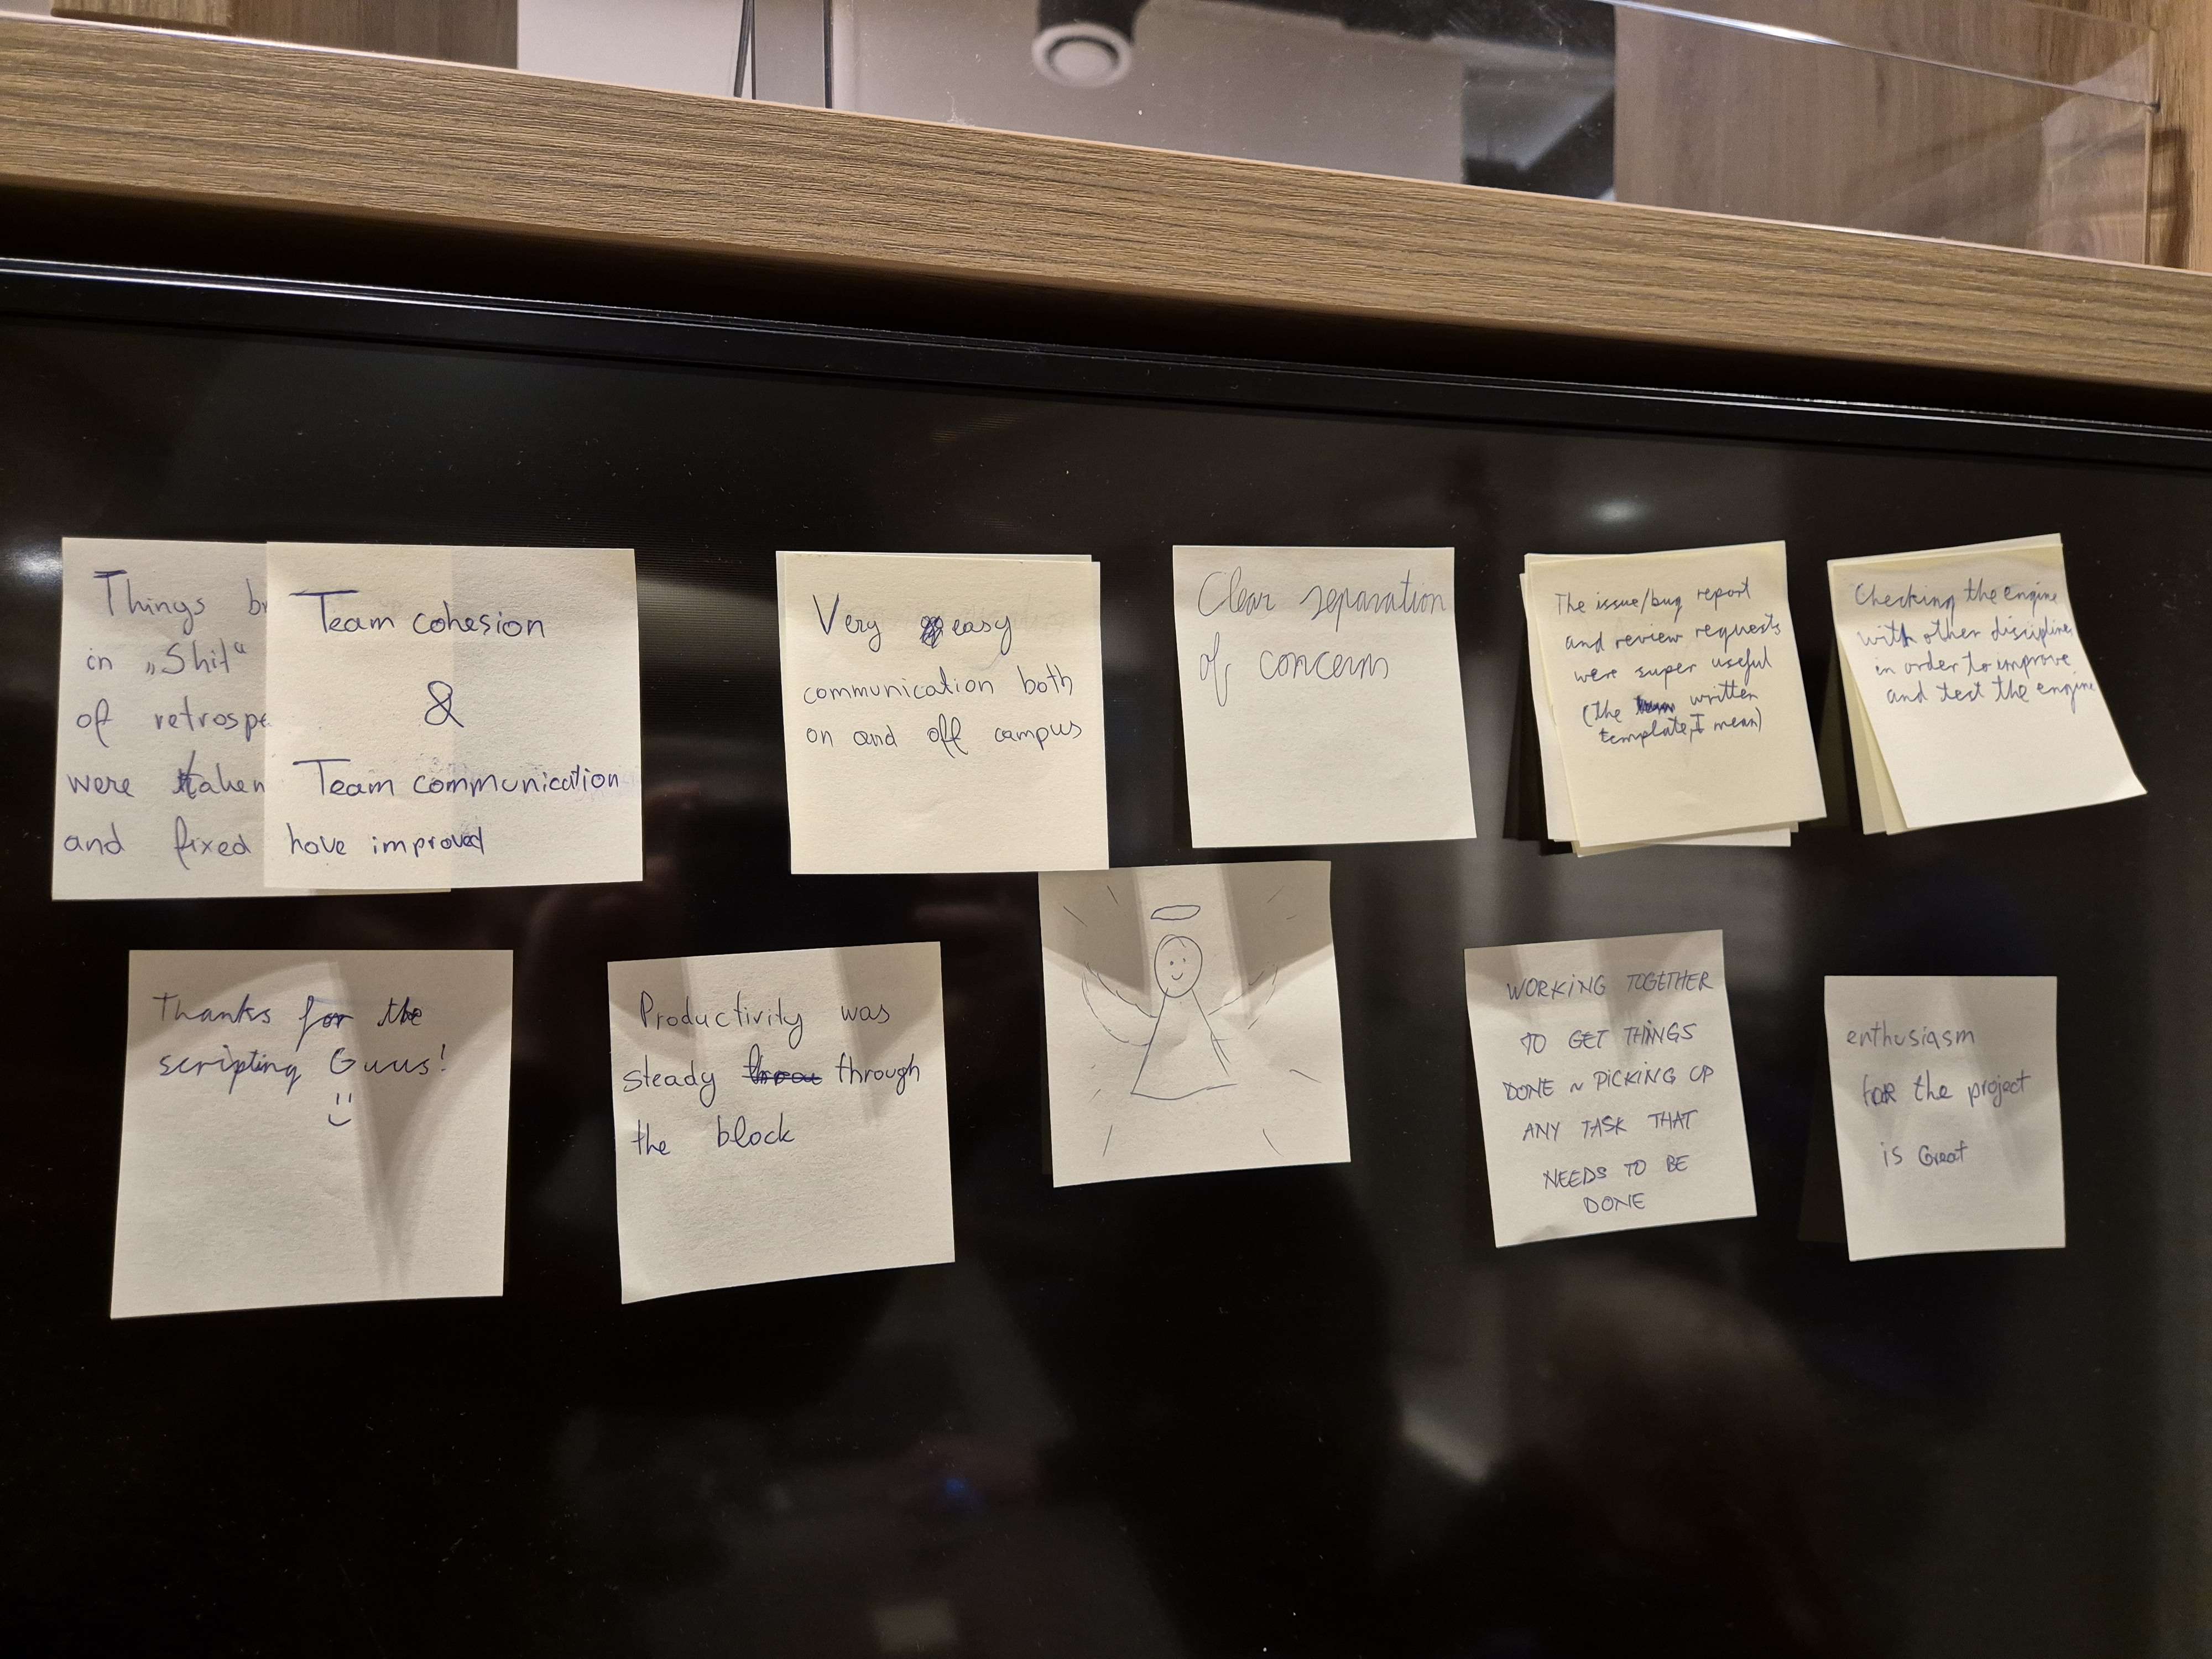 Things
in „Shit"
of
were taken
and fixed
Team cohesion
&
Team communication
have improved
Very easy
communication both
on and off campus
Clear separation
of concerns
The issue/bug report
and review requests
were super useful
(the written
template, I mean)
Checking the engine
with other discipline
in order to improve
and test the engine
Thanks for the
scripting Guus!
Productivity was
steady through
the block
WORKING TOGETHER
TO GET THINGS
DONE ~ PICKING UP
ANY TASK THAT
NEEDS TO BE
DONE
enthusiasm
for the project
is Great